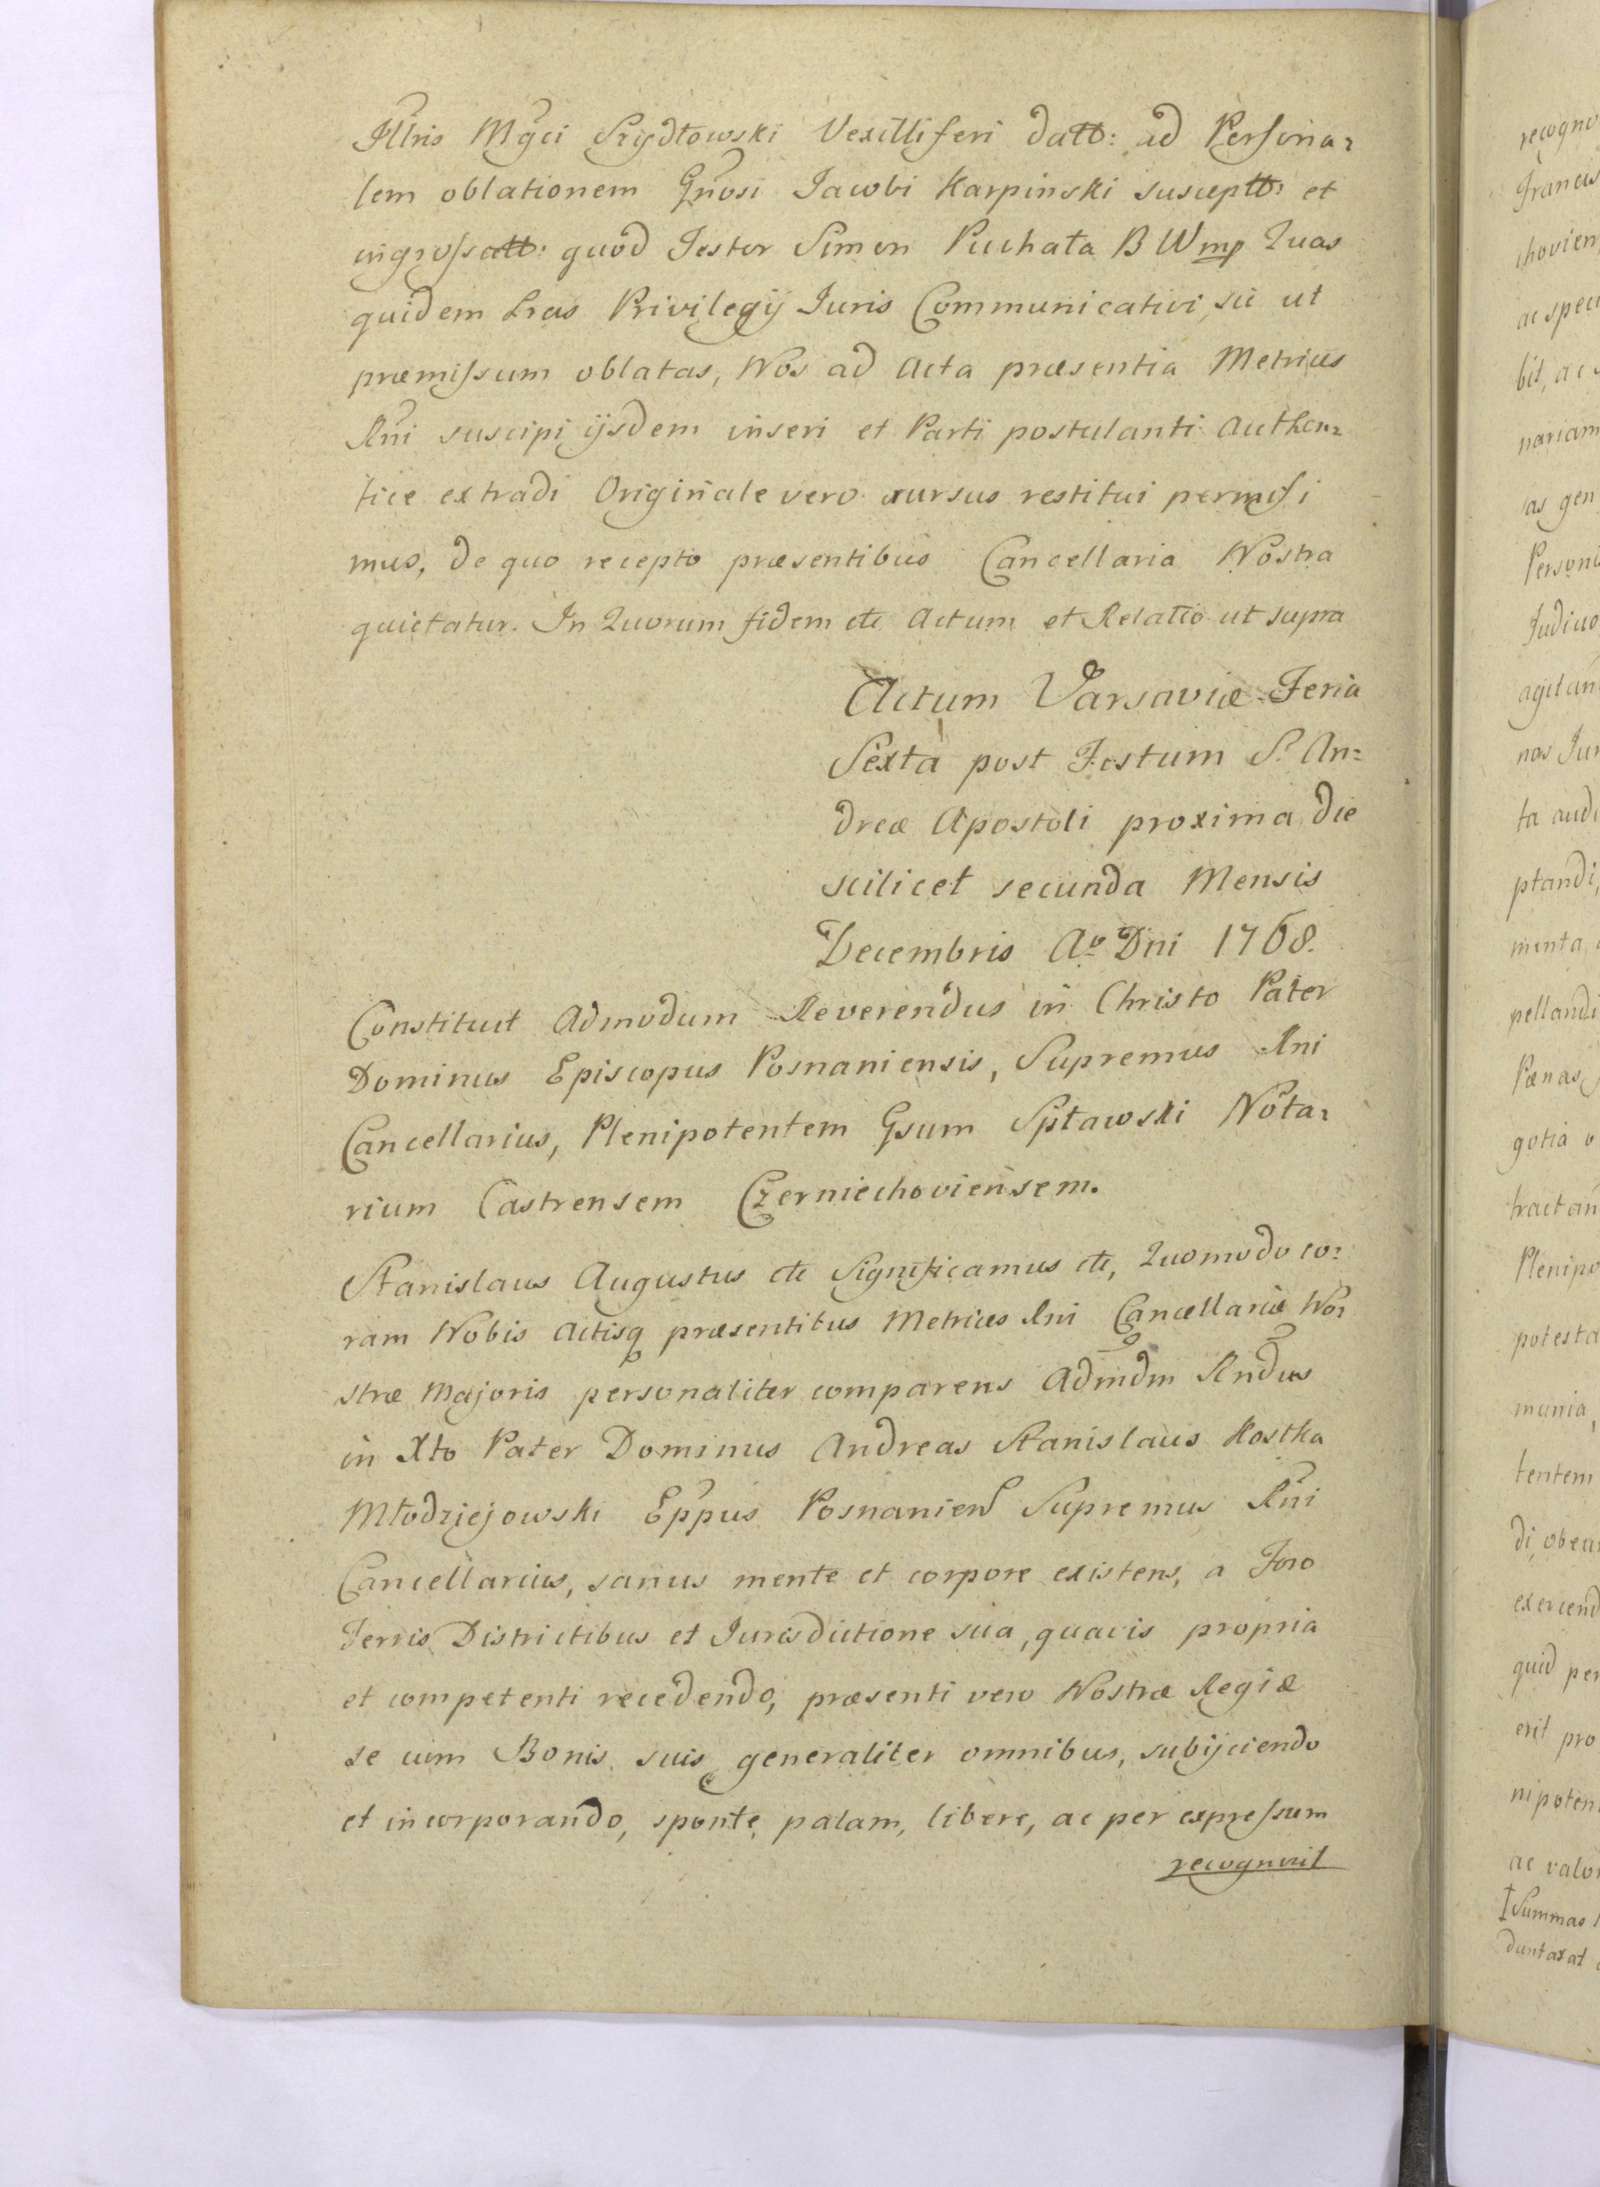 Illris Mgci Szydłowski Vexilliferi datt: ad Persona=
lem oblationem Gnosi Jacobi Karpinski susceptt: et
ingrossatt: quod Testor Simon Puchała B W mp Quas
quidem Lras Privilegij Juris Communicativi, sic ut
præmissum oblatas, Nos ad Acta præsentia Metrices
Rni suscipi ijsdem inseri et Parti postulanti Authen=
tice extradi Originale vero rursus restitui permisi
mus, de quo recepto præsentibus Cancellaria Nostra
quietatur. In Quorum fidem etc Actum et Relatio ut supra
Actum Varsaviæ Feria
Sexta post Festum S. An=
dreæ Apostoli proxima die
scilicet secunda Mensis
Decembris Ao Dni 1768.
Constituit Admodum Reverendus in Christo Pater
Dominus Episcopus Posnaniensis, Supremus Rni
Cancellarius, Plenipotentem Gsum Spławski Nota=
rium Castrensem Czerniechoviensem.
Stanislaus Augustus etc Significamus etc, Quomodo co=
ram Nobis Actisq præsentibus Metrices Rni Cancellariæ No=
stræ Majoris personaliter comparens Admdm Rndus
in Xto Pater Dominus Andreas Stanislaus Kostka
Młodziejowski Eppus Posnanien Supremus Rni
Cancellarius, sanus mente et corpore existens, a Foro
Terris Districtibus et Jurisdictione sua, quavis propria
et competenti recedendo, præsenti vero Nostræ Regiæ
se cum Bonis suis generaliter omnibus, subijciendo
et incorporando, sponte, palam, libere, ac per expressum
recognovit
recogno
Francis
choviens
ac speci
bil, ac s
nariam
as gen
Personis
Judicio
agitan
nos Jur
ta audi
ptandi,
menta
pellandi
Pænas
gotia
tractan
Plenipo
potesta
munia,
tentem
di, obeun
exercend
quid per
erit pro
nipoten
ac valo
Summas
duntaxat